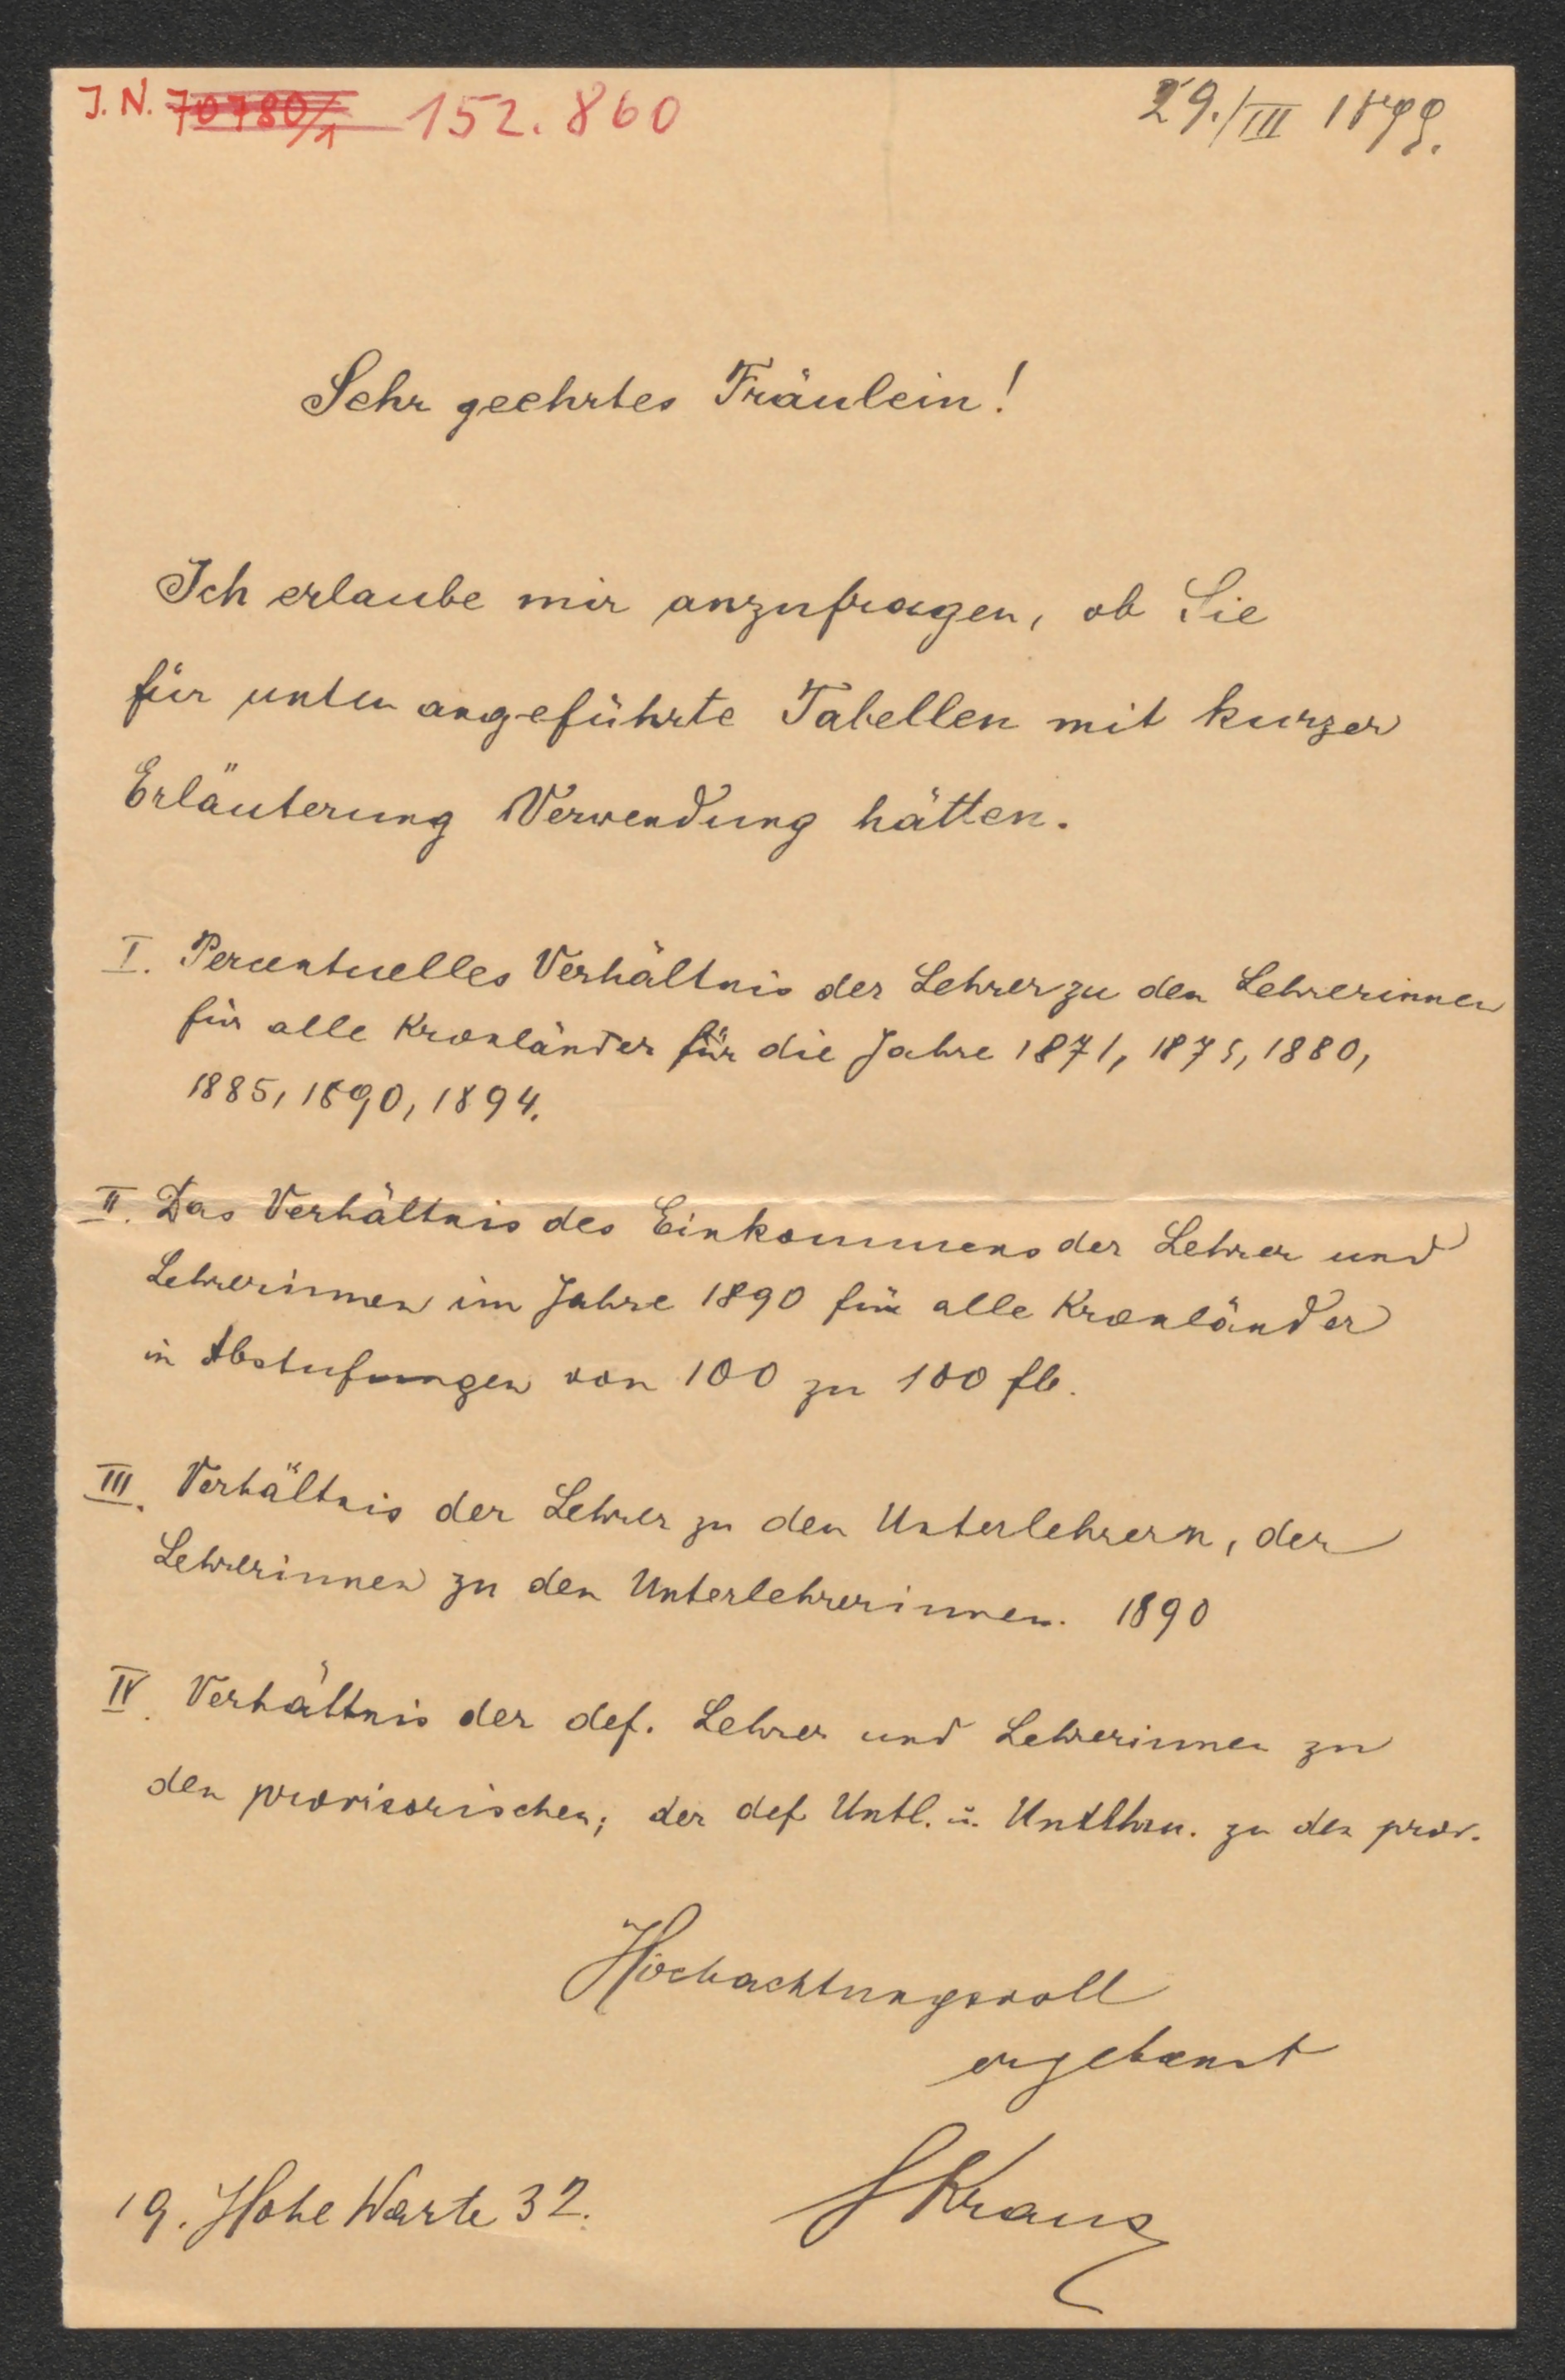 J. N. 70780/1 152.860
29./III 1899.
Sehr geehrtes Fräulein!
Ich erlaube mir anzufragen, ob Sie
für unten angeführte Tabellen mit kurzer
Erläuterung Verwendung hätten.
I. Percentuelles Verhältnis der Lehrer zu den Lehrerinnen
für alle Kronländer für die Jahre 1871, 1875, 1880,
1885, 1890, 1894.
II. Das Verhältnis des Einkommens der Lehrer und
Lehrerinnen im Jahre 1890 für alle Kronländer
in Abstufungen von 100 zu 100 fl.
III. Verhältnis der Lehrer zu den Unterlehrern, der
Lehrerinnen zu den Unterlehrerinnen. 1890
IV. Verhältnis der def. Lehrer und Lehrerinnen zu
den provisorischen; der def Untl. u. Untlhrn. zu den prov.
Hochachtungsvoll
ergebenst
SKraus
19. Hohe Warte 32.